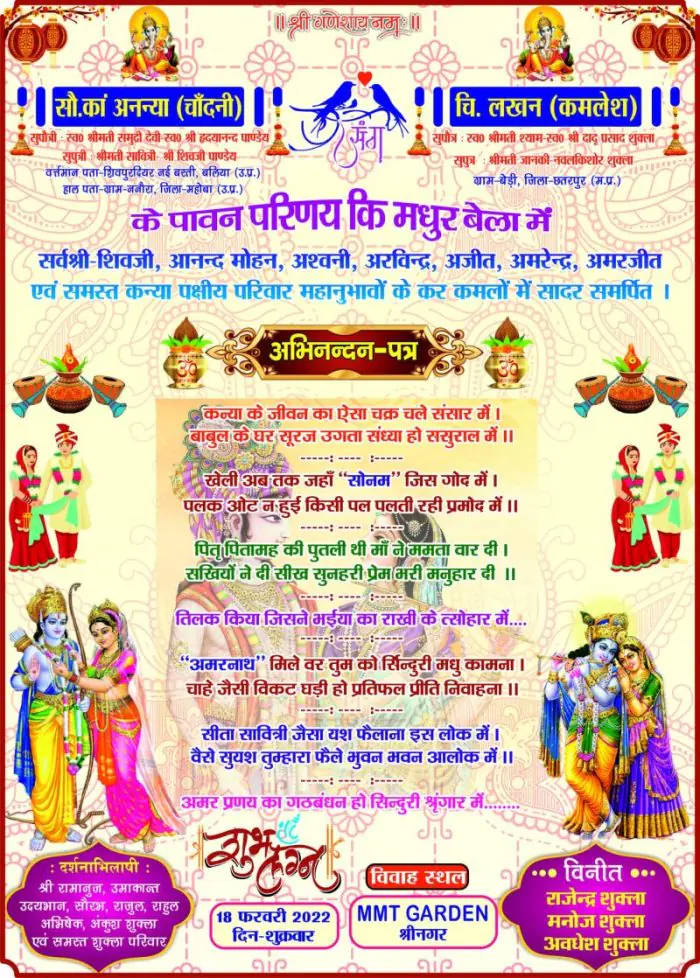 ॥ श्री गणेशाय नमः ॥
सौ.कां अनन्या (चाँदनी)
सुपौत्री : स्व० श्रीमती समुद्री देवी-स्व० श्री हृदयानन्द पाण्डेय
सुपुत्री : श्रीमती सावित्री- श्री शिवजी पाण्डेय
वर्त्तमान पता-शिवपुरदियर नई बस्ती, बलिया (उ.प्र.)
हाल पता-ग्राम-ननौरा, जिला-महोबा (उ.प्र.)
संग
चि. लखन (कमलेश)
सुपौत्र : स्व० श्रीमती श्याम-स्व० श्री दादू प्रसाद शुक्ला
सुपुत्र : श्रीमती जानकी नवलकिशोर शुक्ला
ग्राम-बेड़ी, जिला-छतरपुर (म.प्र.)
के पावन परिणय कि मधुर बेला में
सर्वश्री-शिवजी, आनन्द मोहन, अश्वनी, अरविन्द्र, अजीत, अमरेन्द्र, अमरजीत
एवं समस्त कन्या पक्षीय परिवार महानुभावों के कर कमलों में सादर समर्पित ।
अभिनन्दन-पत्र
कन्या के जीवन का ऐसा चक्र चले संसार में ।
बाबुल के घर सूरज उगता संध्या हो ससुराल में ।।
-----: ---- :-----
खेली अब तक जहाँ “सोनम” जिस गोद में ।
पलक ओट न हुई किसी पल पलती रही प्रमोद में ।।
-----: ---- :-----
पितृ पितामह की पुतली थी माँ ने ममता वार दी ।
सखियों ने दी सीख सुनहरी प्रेम भरी मनुहार दी ।।
-----: ---- :-----
तिलक किया जिसने भईया का राखी के त्सोहार में....
-----: ---- :-----
“अमरनाथ” मिले वर तुम को सिंन्दुरी मधु कामना ।
चाहे जैसी विकट घड़ी हो प्रतिफल प्रीति निवाहना ।।
-----: ---- :-----
सीता सावित्री जैसा यश फैलाना इस लोक में ।
वैसे सुयश तुम्हारा फैले भुवन भवन आलोक में ।।
-----: ---- :-----
अमर प्रणय का गठबंधन हो सिन्दुरी श्रृंगार में........
शुभ लग्न
18 फरवरी 2022
दिन-शुक्रवार
विवाह स्थल
MMT GARDEN
श्रीनगर
: दर्शनाभिलाषी :
श्री रामानुज, उमाकान्त
उदयभान, सौरभ, राजुल, राहुल
अभिषेक, अंकुश शुक्ला
एवं समस्त शुक्ला परिवार
... विनीत ...
राजेन्द्र शुक्ला
मनोज शुक्ला
अवधेश शुक्ला